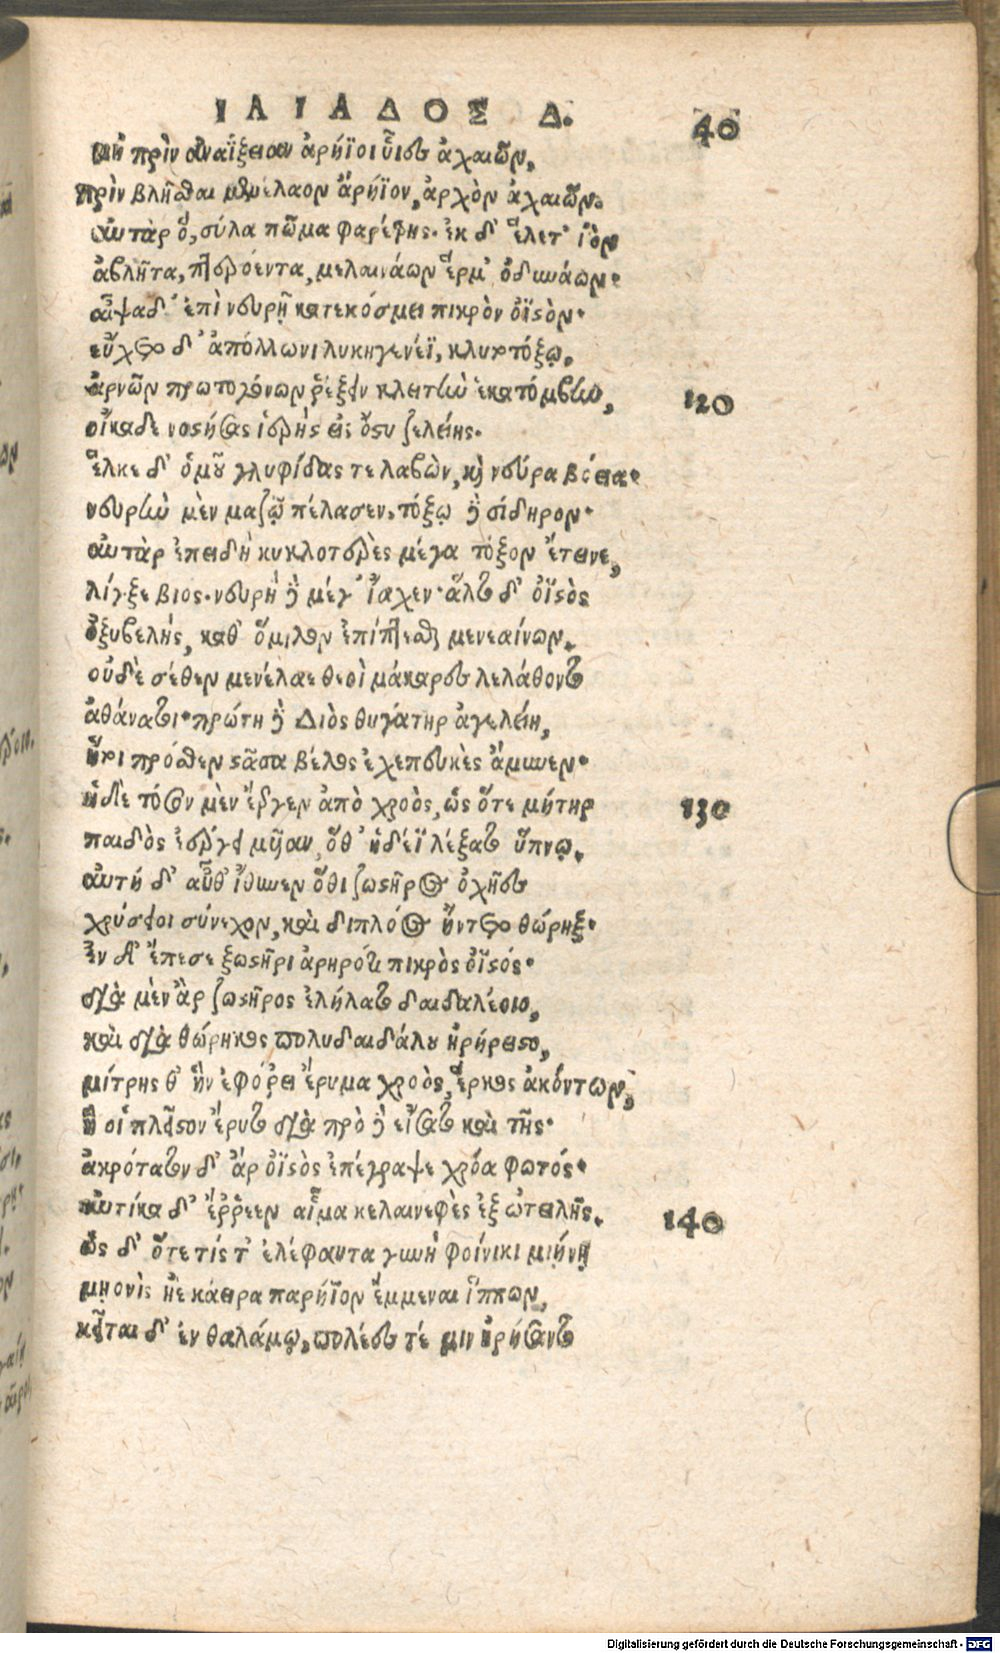 ΙΛΙΑΔΟΣ Δ. 40
μὴ πρὶν ἀναΐξειαν ἀρήϊοι υἷες ἀχαιῶν,
πρὶν βλῆσθαι μενέλαον ἀρήϊον, ἀρχὸν ἀχαιῶν.
αὐτὰρ ὅ, σύλα πῶμα φαρέτρης. ἐκ δ' ἕλετ' ἰὸν
ἀβλῆτα, πτερόεντα, μελαινάων ἕρμ' ὀδυνάων.
αἶψα δ' ἐπὶ νευρῇ κατεκόσμει πικρὸν ὀϊστὸν.
εὔχετο δ' ἀπόλλωνι λυκηγενέϊ, κλυτοτόξῳ,
ἀρνῶν πρωτογόνων ῥέξειν κλειτὴν ἑκατόμβην, 120
οἴκαδε νοστήσας ἱερῆς εἰς ἄστυ ζελείης.
ἕλκε δ' ὁμοῦ γλυφίδας τε λαβὼν, καὶ νεῦρα βόεια.
νευρὴν μὲν μαζῷ πέλασεν, τόξῳ δὲ σίδηρον.
αὐτὰρ ἐπειδὴ κυκλοτερὲς μέγα τόξον ἔτεινε,
λίγξε βιος. νευρὴ δὲ μέγ' ἴαχεν. ἆλτο δ' ὀϊστὸς
ὀξυβελὴς, καθ' ὅμιλον ἐπίπτεσθαι μενεαίνων.
οὐδὲ σέθεν μενέλαε θεοὶ μάκαρες λελάθοντο
ἀθάνατοι. πρώτη δὲ Διὸς θυγάτηρ ἀγελείη,
ἥ τοι πρόσθεν στᾶσα βέλος ἐχεπευκὲς ἄμυνεν.
ἡ δὲ τόσον μὲν ἔεργεν ἀπὸ χροὸς, ὡς ὅτε μήτηρ 130
παιδὸς ἐέργει μῦιαν, ὅθ' ἡδέϊ λέξατο ὕπνῳ.
αὐτὴ δ' αὖθ' ἴθυνεν ὅθι ζωστῆρος ὀχῆες
χρύσειοι σύνεχον, καὶ διπλόος ἤντετο θώρηξ.
ἐν δ' ἔπεσε ζωστῆρι ἀρηρότι πικρὸς ὀϊστός.
διὰ μὲν ἂρ ζωστῆρος ἐλήλατο δαιδαλέοιο,
καὶ διὰ θώρηκος πολυδαιδάλου ἠρήρειστο,
μίτρης θ' ἣν ἐφόρει ἔρυμα χροὸς, ἕρκος ἀκόντων,
ἥ οἱ πλεῖστον ἔρυτο διὰ πρὸ δὲ εἴσατο καὶ τῆς.
ἀκρότατον δ' ἄρ ὀϊστὸς ἐπέγραψε χρόα φωτός.
αὐτίκα δ' ἔῤῥεεν αἷμα κελαινεφὲς ἐξ ὠτειλῆς. 140
ὡς δ' ὅτε τίς τ' ἐλέφαντα γυνὴ φοίνικι μιήνῃ
μῃονὶς ἠὲ κάειρα παρήϊον ἔμμεναι ἵππων,
κεῖται δ' ἐν θαλάμῳ, πολέες τέ μιν ἠρήσαντο
Digitalisierung gefördert durch die Deutsche Forschungsgemeinschaft - DFG